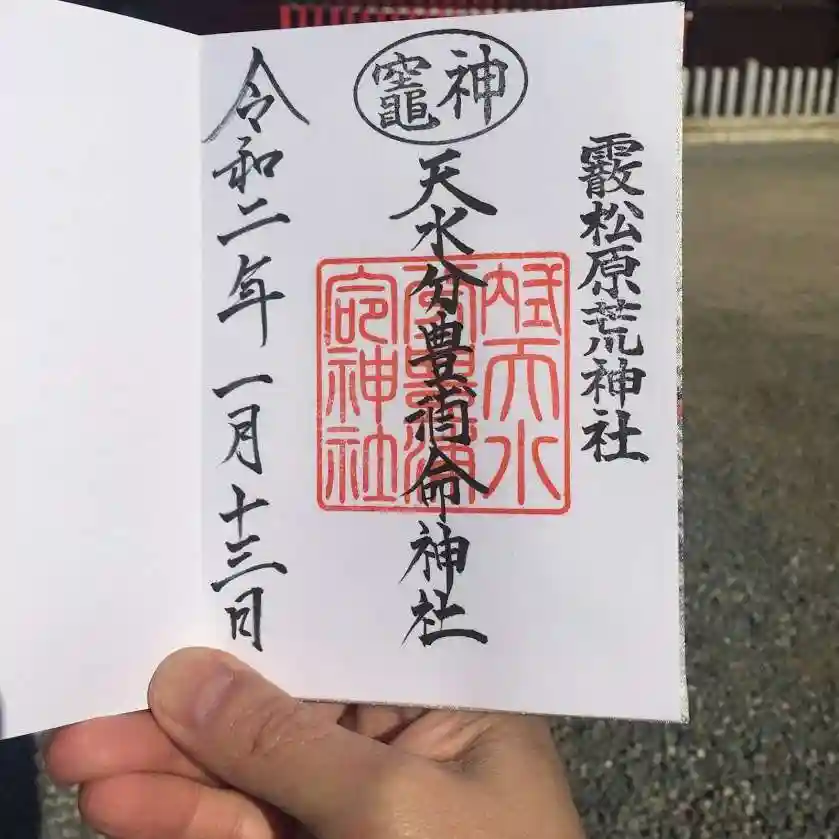 霰松原荒神社
神竈
天水分豊浦命神社
天水
命神社
令和二年一月十三日